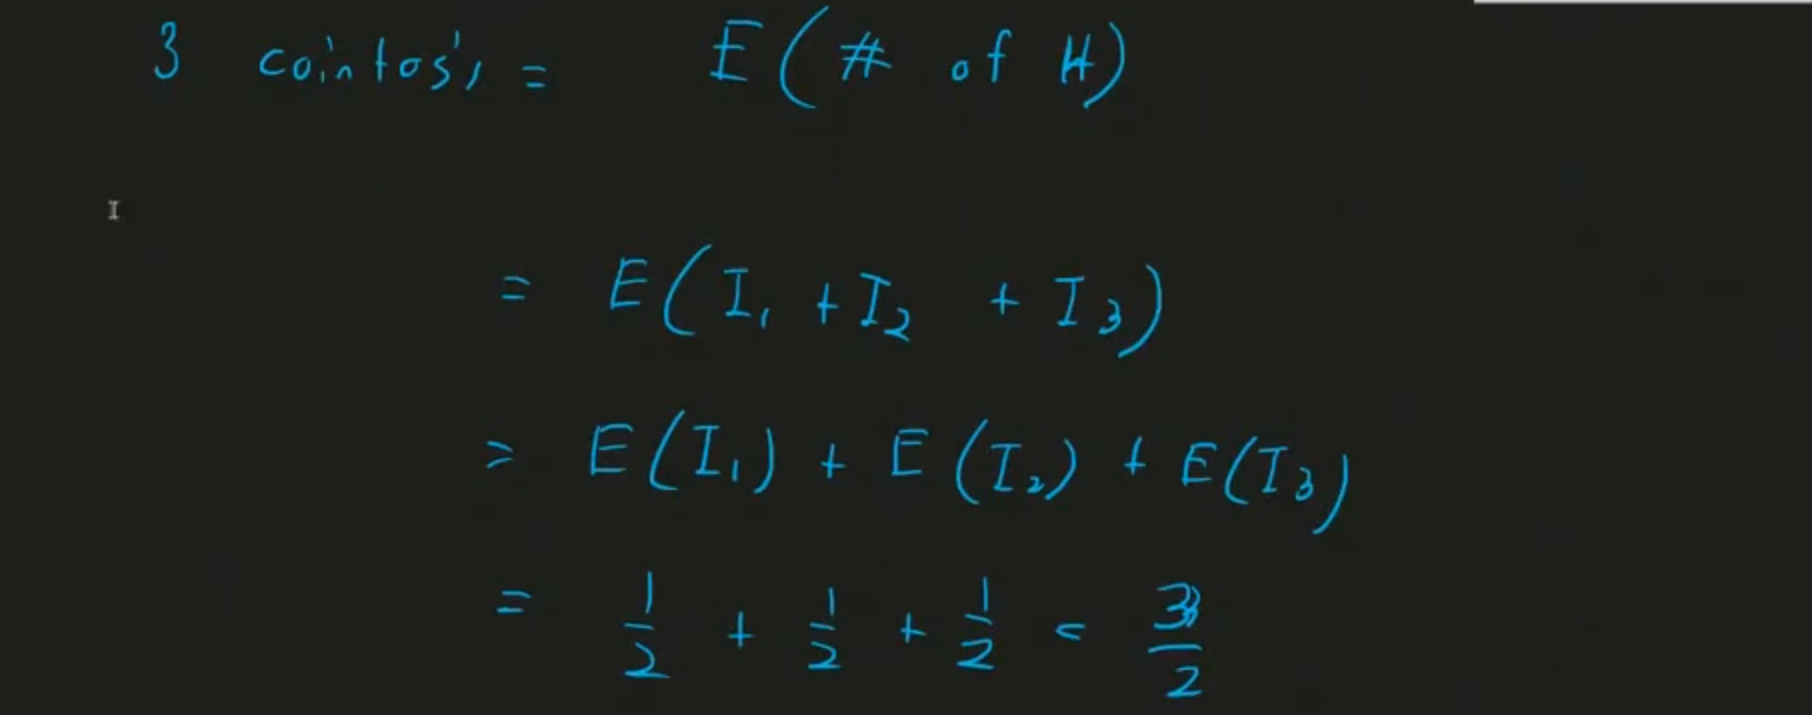 3 cointos's = E(# of H)
= E(I₁ + I₂ + I₃)
= E(I₁) + E(I₂) + E(I₃)
= 1/2 + 1/2 + 1/2 = 3/2